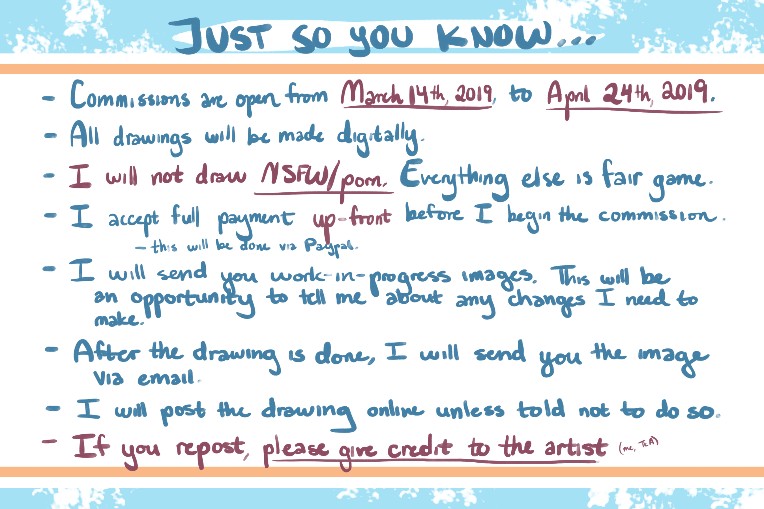 JUST SO YOU KNOW...
- Commissions are open from March 14th, 2019, to April 24th, 2019.
- All drawings will be made digitally.
- I will not draw NSFW/porn. Everything else is fair game.
- I accept full payment up-front before I begin the commission.
- this will be done via Paypal.
- I will send you work-in-progress images. This will be
an opportunity to tell me about any changes I need to
make.
- After the drawing is done, I will send you the image
via email.
- I will post the drawing online unless told not to do so.
- If you repost, please give credit to the artist (me,